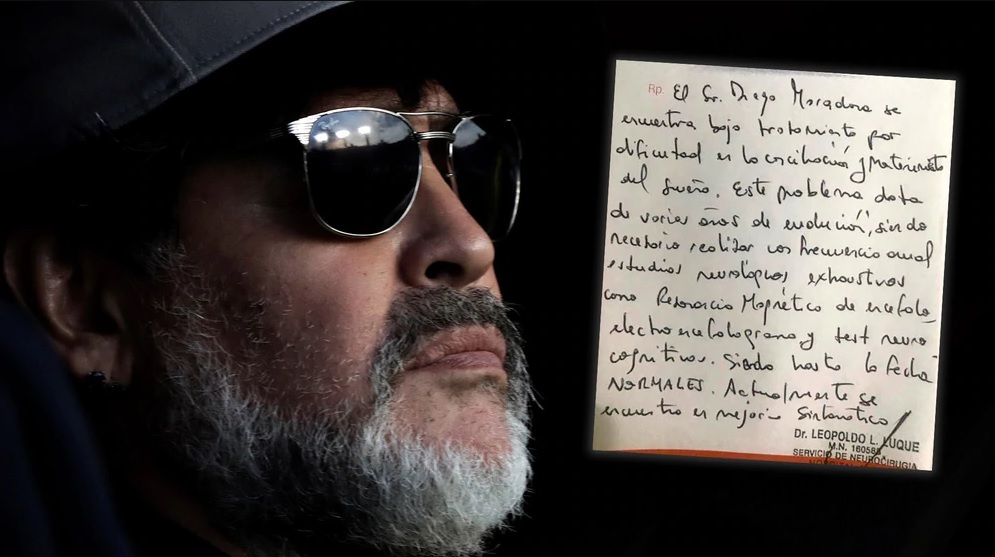 Rp. El Sr. Diego Maradona se
encuentra bajo tratamiento por
dificultad en la conciliación y mantenimiento
del sueño. Este problema data
de varios años de evolución, siendo
necesario realizar con frecuencia anual
estudios neurológicos exhaustivos
como Resonancia Magnética de encefalo,
electroencefalograma y test neuro
cognitivos. Siendo hasta la fecha
NORMALES. Actualmente se
encuentra en mejoria sintomática
Dr. LEOPOLDO L. LUQUE
M.N.
SERVICIO DE NEUROCIRUGIA